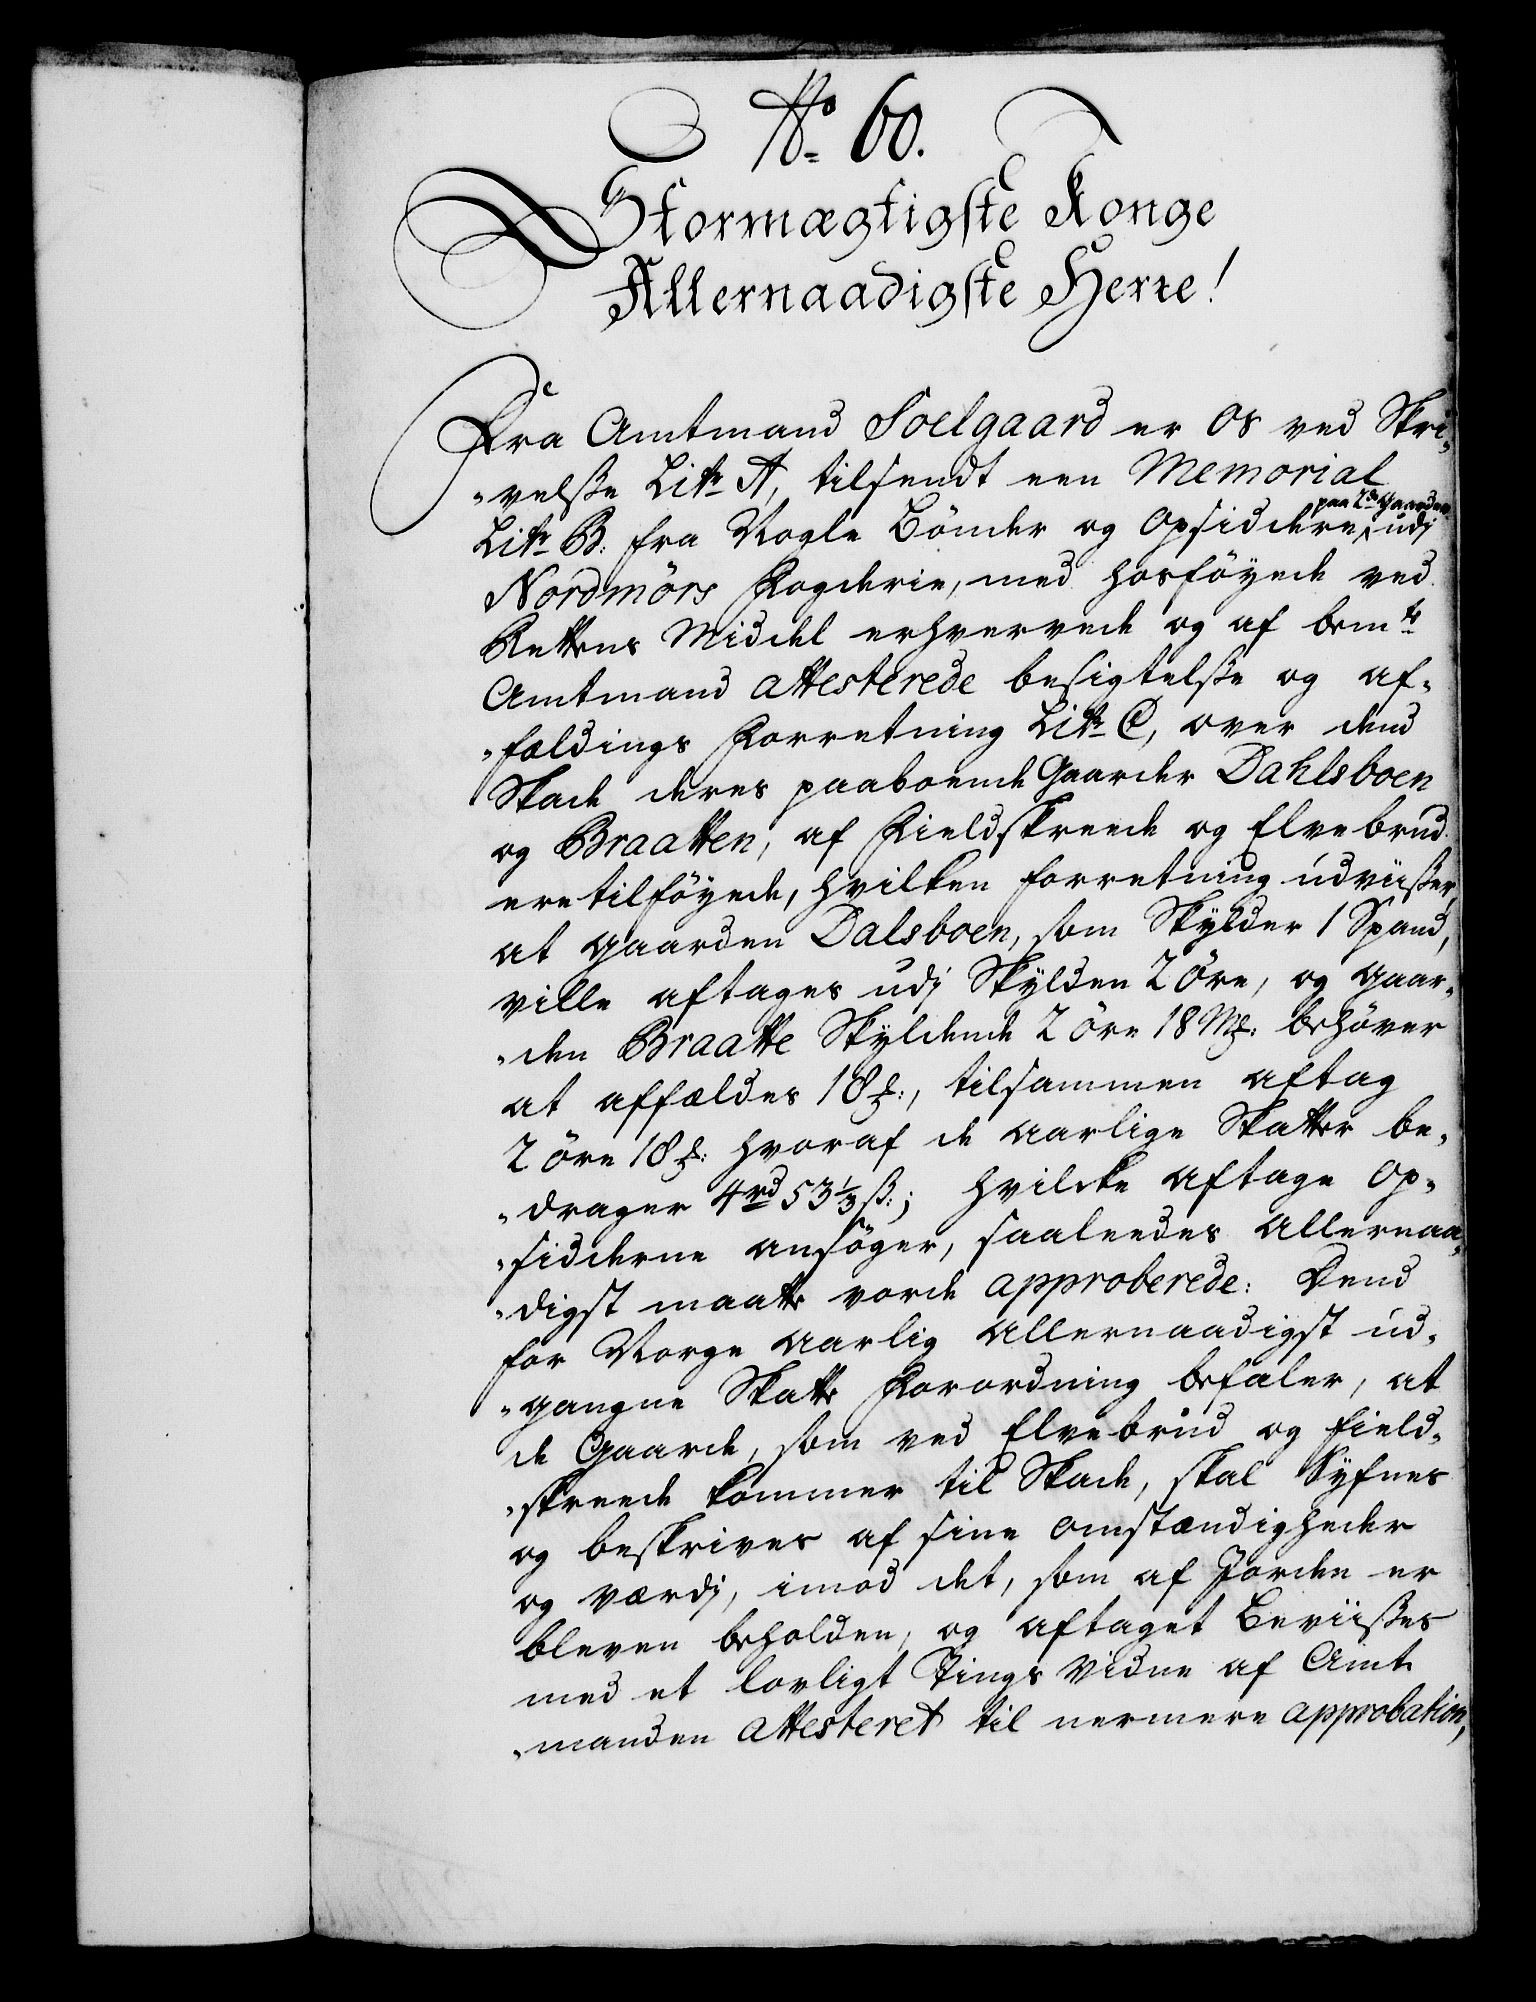 No. 60.
Stormægtigste Konge
Allernaadigste Herre!
Fra Amtmand Soelgaard er os ved Skri„
„velße Litr A, tilsendt een Memorial
Litr B: fra Nogle Bönder og Opsiddere paa 2de Gaarder udj
Nordmörs Fogderie, med hosföyede ved
Rettens Middel erhvervede og af bemte
Amtmand attesterede besigtelße og af„
„fældings Forretning Litr C, over dend
Skade deres paaboende Gaarder Dahlsboen
og Braatten, af Fieldskreede og Elvebrud
ere tilföyede, hvilken forretning udviißer,
at gaarden Dalsboen, som Skylder 1 Spand,
ville aftages udj Skylden 2 Öre, og gaar„
„den Braatte Skyldende 2 öre 18 M℔: behöver
at affældes 18 ℔:, tilsammen aftag
2 öre 18 ℔: hvoraf de aarlige Skatter be„
„drager 4 rd 53 1/3 ß:; hvilcke aftage Op„
„sidderne ansöger, saaleedes allernaa„
„digst maatte vorde approberede: Dend
for Norge aarlig allernaadigst ud„
„gangne Skatte Forordning befaler, at
de Gaarde, som ved Elvebrud og field„
„skreede kommer til Skade, skal Syfnes
og beskrives af sine omstændigheder
og værdj, imod det, som af Jorden er
bleven beholden, og aftaget Beviißes
med et lovligt Tings Vidne af Amt
„manden attesteret til nermere approbation,